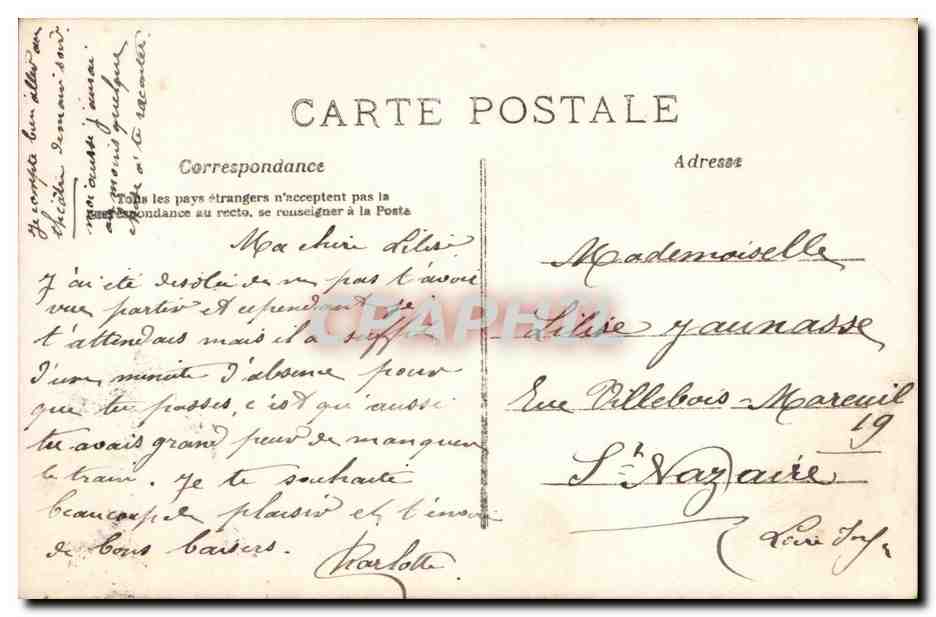 CARTE POSTALE
Correspondance
Adresse
Tous les pays étrangers n'acceptent pas la
correspondance au recto, se renseigner à la Poste
Ma chère Lilise
J'ai été désolée de ne pas t'avoir
vue partir et cependant je
t'attendais mais il a suffit
d'une minute d'absence pour
que tu passes, c'est qu'aussi
tu avais grand peur de manquer
le train. Je te souhaite
beaucoup de plaisir et t'envoie
de bons baisers.
Charlotte
Je compte bien aller au
théâtre demain soir
moi aussi j'aurai
au moins quelque
chose à te raconter.
Mademoiselle
Lilise Jaunasse
Rue Villebois-Mareuil
19
St Nazaire
Loire Infre
CPAPHIL